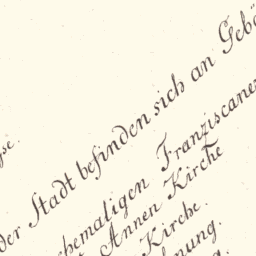 der Stadt befinden sich an Gebä
ehemaligen Franziscaner
Annen Kirche
Kirche.